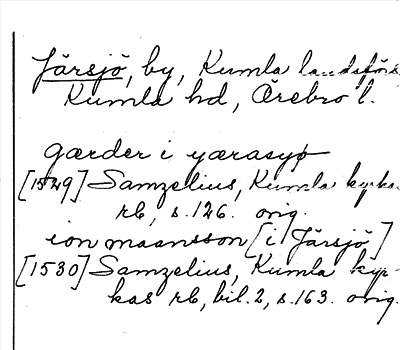 Järsjö, by, Kumla landsförs.
Kumla hd, Örebro l.
gærder i yærasyø
[1529] Samzelius, Kumla kyrkas
rb, s.126. orig.
ion maansson [i Järsjö]
[1530] Samzelius, Kumla kyr-
kas rb, bil.2, s.163. orig.